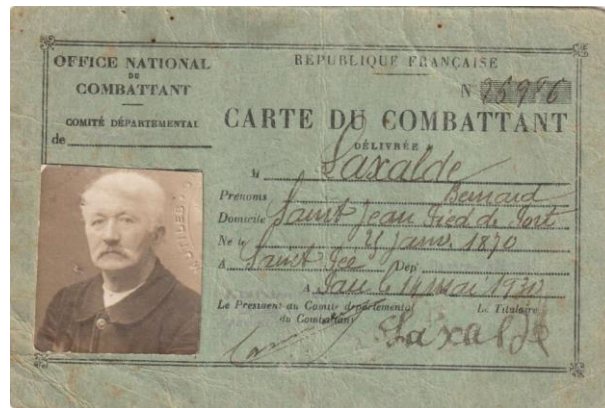 OFFICE NATIONAL
DU
COMBATTANT
COMITÉ DÉPARTEMENTAL
de
RÉPUBLIQUE FRANÇAISE
N 25986
CARTE DU COMBATTANT
DÉLIVRÉE
M Laxalde
Prénoms Bernard
Domicile Saint Jean Pied de Port
Né le 21 janv. 1870
A Saint Dep'
A Pau le 14 mai 1930
Le Président du Comité départemental
du Combattant
Le Titulaire
Laxalde
MUTILÉS